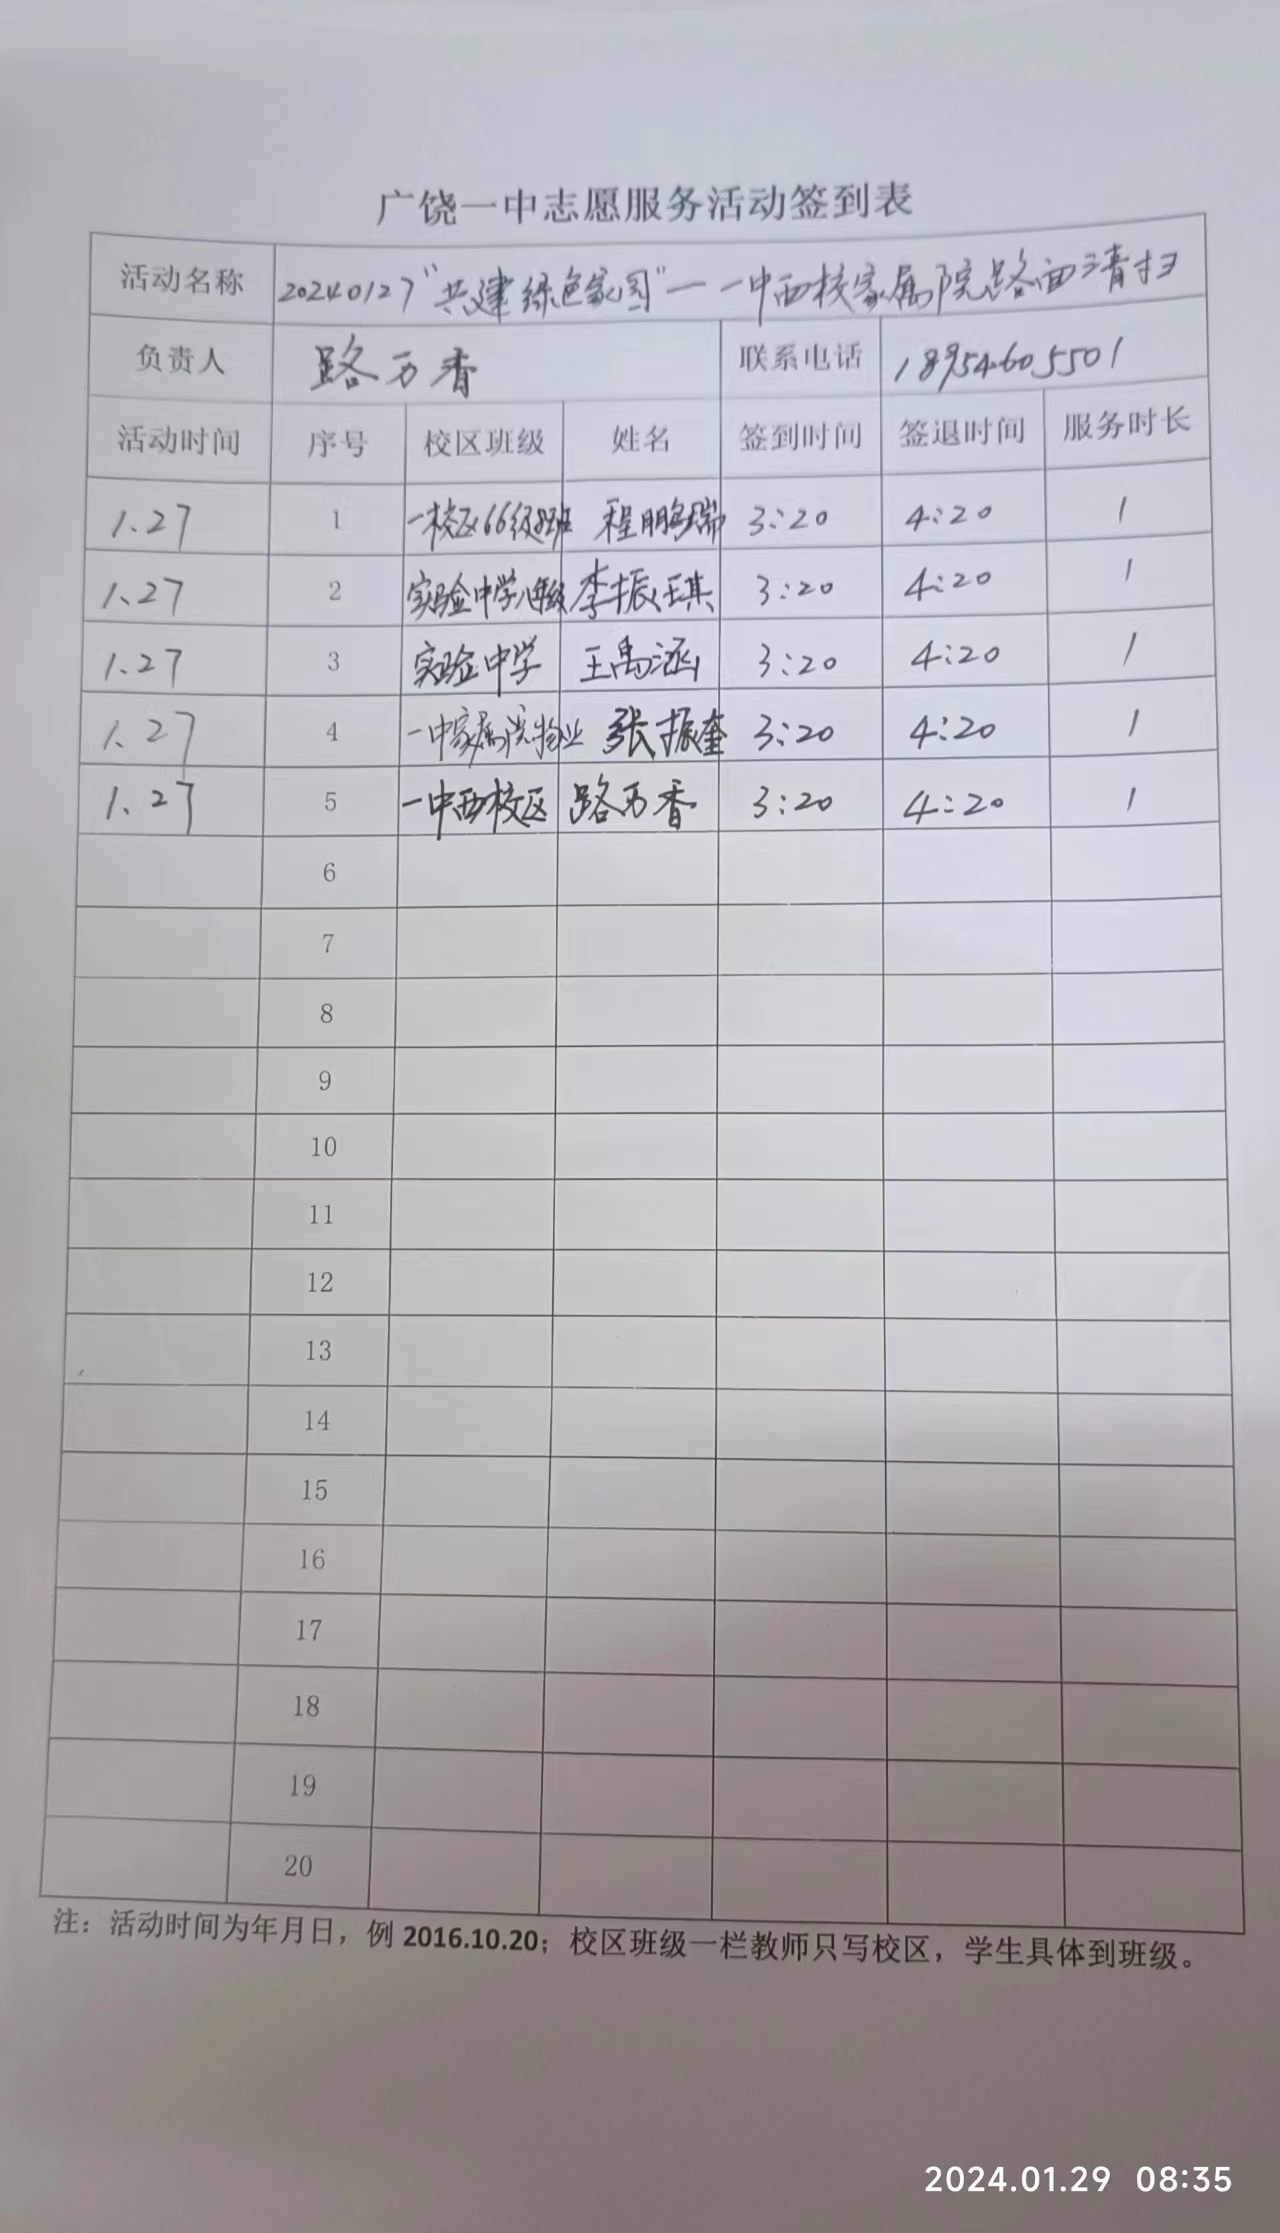 广饶一中志愿服务活动签到表
活动名称 20240127“共建绿色家园”——一中西校家属院路面清扫
负责人 路万香 联系电话 18954605501
活动时间 序号 校区班级 姓名 签到时间 签退时间 服务时长
1.27 1 一校区66级 班 程鹏瑞 3:20 4:20 1
1.27 2 实验中学 级 李振琪 3:20 4:20 1
1.27 3 实验中学 王禹涵 3:20 4:20 1
1.27 4 一中家属院物业 张振奎 3:20 4:20 1
1.27 5 一中西校区 路万香 3:20 4:20 1
6
7
8
9
10
11
12
13
14
15
16
17
18
19
20
注：活动时间为年月日，例 2016.10.20；校区班级一栏教师只写校区，学生具体到班级。
2024.01.29 08:35